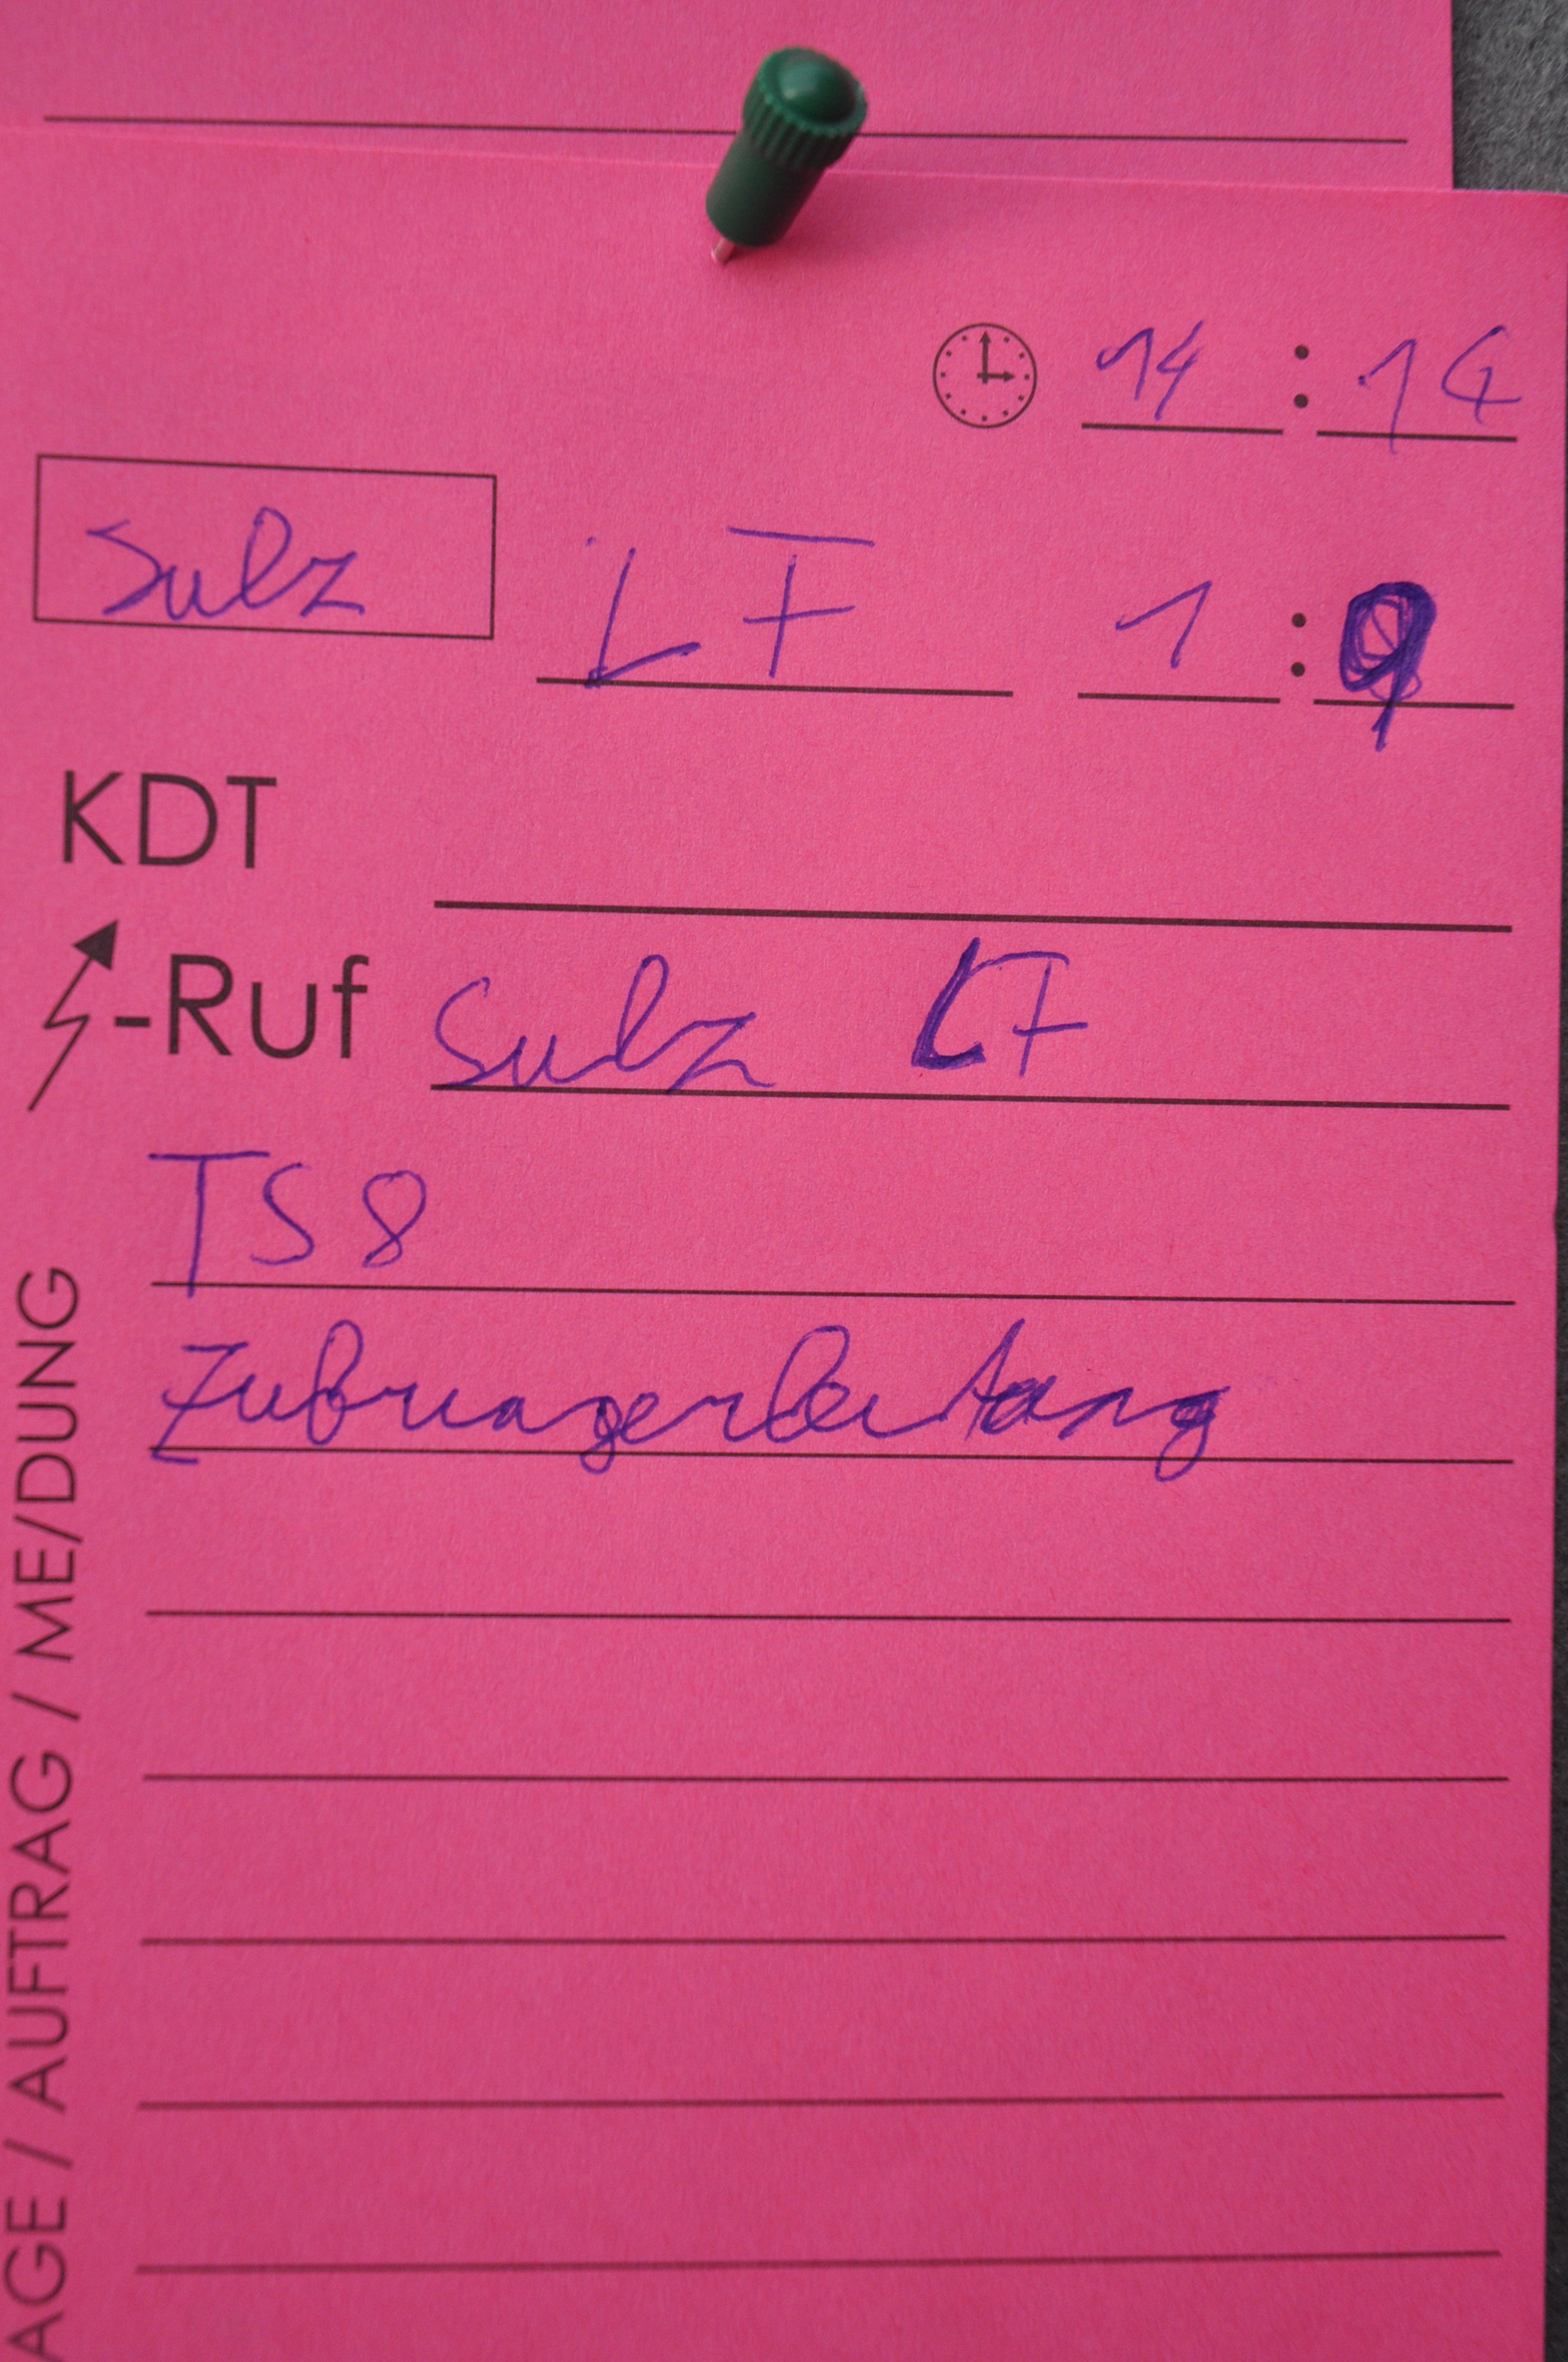 14 : 14
Sulz LF 1 : 9
KDT
-Ruf Sulz LF
TS 8
Zubringerleitung
AGE / AUFTRAG / ME/DUNG